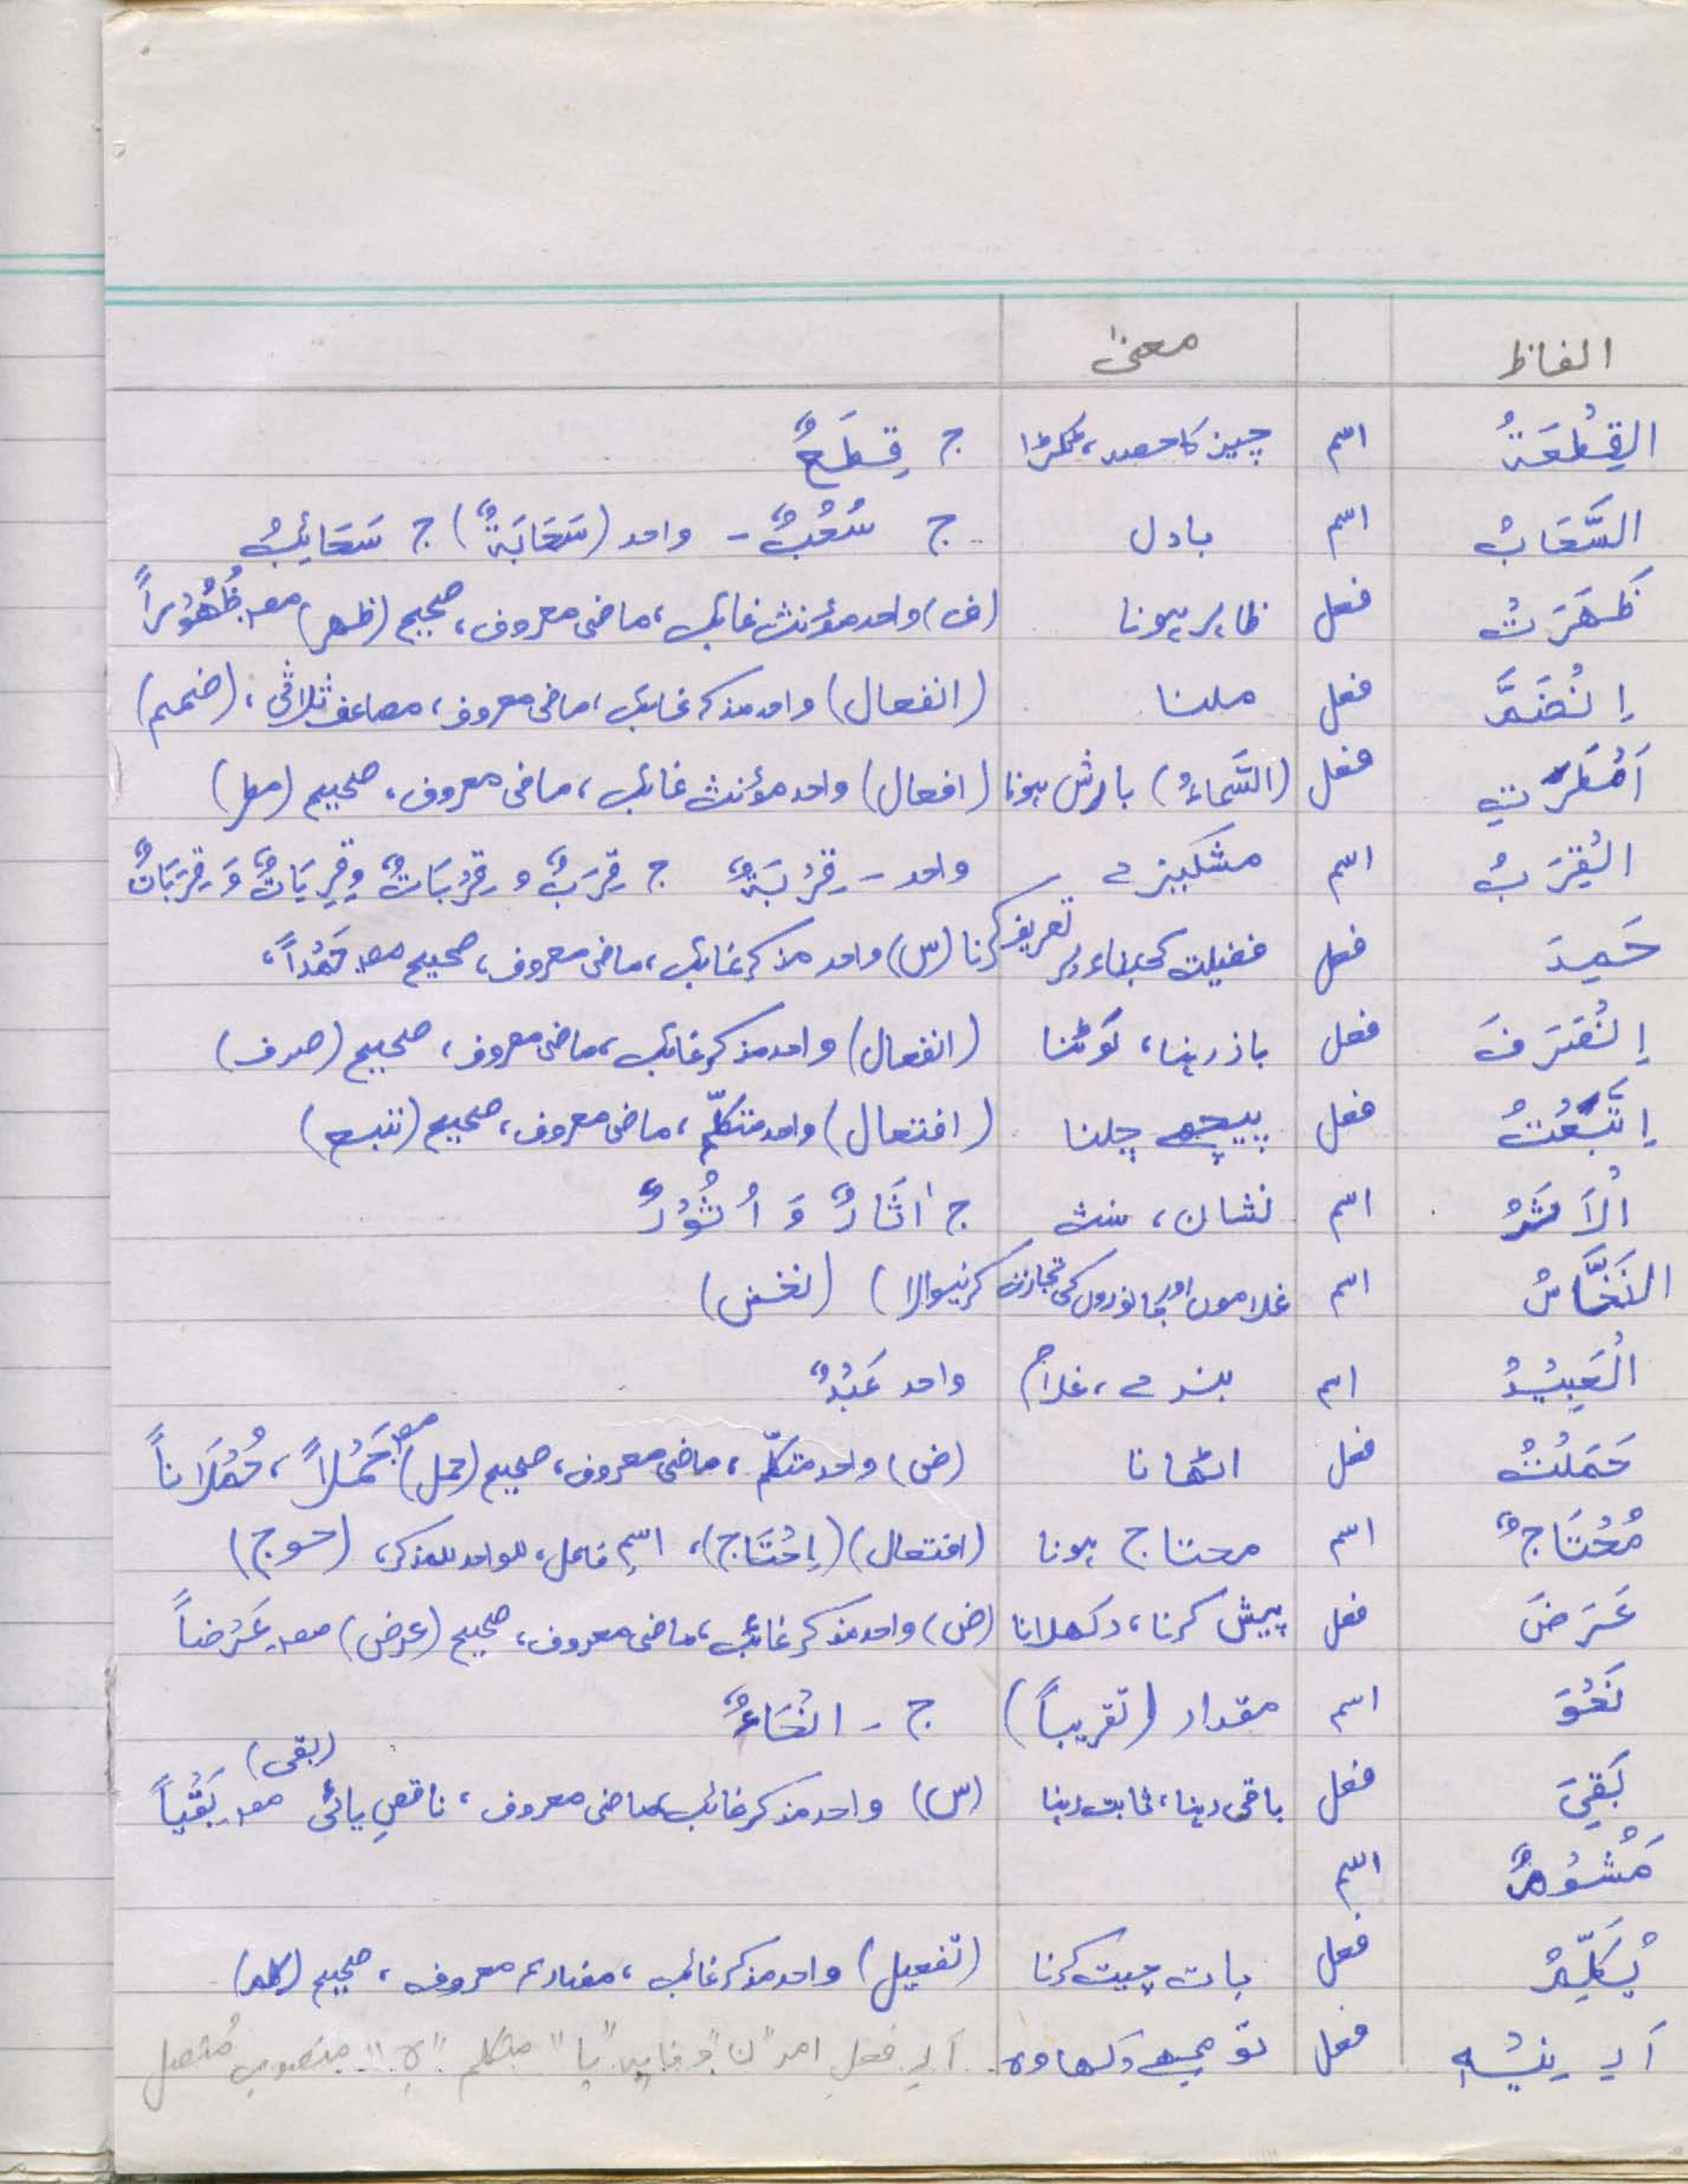 الفاظ معنیٰ
القِطْعَةُ اسم چیز کا حصہ، ٹکڑا ج قِطَعٌ
السَّحَابُ اسم بادل ج سُحُبٌ - واحد (سَحَابَةٌ) ج سَحَائِبُ
ظَهَرَتْ فعل ظاہر ہونا (ف) واحد مؤنث غائب، ماضی معروف، صحیح (ظہر) مصـ ظُهُوْراً
اِنْضَمَّ فعل ملنا (انفعال) واحد مذکر غائب، ماضی معروف، مضاعف ثلاثی، (ضمم)
اَمْطَرَتِ فعل (السَّمَاءُ) بارش ہونا (افعال) واحد مؤنث غائب، ماضی معروف، صحیح (مطر)
الْقِرَبُ اسم مشکیزے واحد - قِرْبَةٌ ج قِرَبٌ و قِرْبَاتٌ وقِرِبَاتٌ وَ قِرَبَاتٌ
حَمِدَ فعل فضیلت کی بناء پر تعریف کرنا (س) واحد مذکر غائب، ماضی معروف، صحیح مصـ حَمْداً،
اِنْصَرَفَ فعل باز رہنا، لَوٹنا (انفعال) واحد مذکر غائب، ماضی معروف، صحیح (صرف)
اِتَّبَعْتُ فعل پیچھے چلنا (افتعال) واحد متکلّم، ماضی معروف، صحیح (تبع)
الْاَثَرُ اسم نشان، سنت ج اٰثَارٌ وَ اُثُوْرٌ
النَخَّاسُ اسم غلاموں اور جانوروں کی تجارت کرنیوالا (نخس)
الْعَبِيْدُ اسم بندے، غلام واحد عَبْدٌ
حَمَلْتُ فعل اٹھانا (ض) واحد متکلّم، ماضی معروف، صحیح (حمل) مصـ حَمْلاً، حُمْلَاناً
مُحْتَاجٌ اسم محتاج ہونا (افتعال) (اِحْتَاج)، اسمِ فاعل، للواحد للمذکر، (حوج)
عَرَضَ فعل پیش کرنا، دکھلانا (ض) واحد مذکر غائب، ماضی معروف، صحیح (عرض) مصـ عَرْضاً
نَحْوَ اسم مقدار (تقریباً) ج - انْحَاءٌ
بَقِيَ فعل باقی رہنا، ثابت رہنا (س) واحد مذکر غائب، ماضی معروف، ناقصِ یائی مصـ بَقْياً (بقی)
اسم
يُكَلِّمُ فعل بات چیت کرنا (تفعیل) واحد مذکر غائب، مضارع معروف، صحیح (کلم)
اَرِيْنِيْهِ فعل تو مجھے دکھا وہ اَرِ فعل امر "ن" وقایہ "یا" متکلم "ہِ" منصوب مُتصل